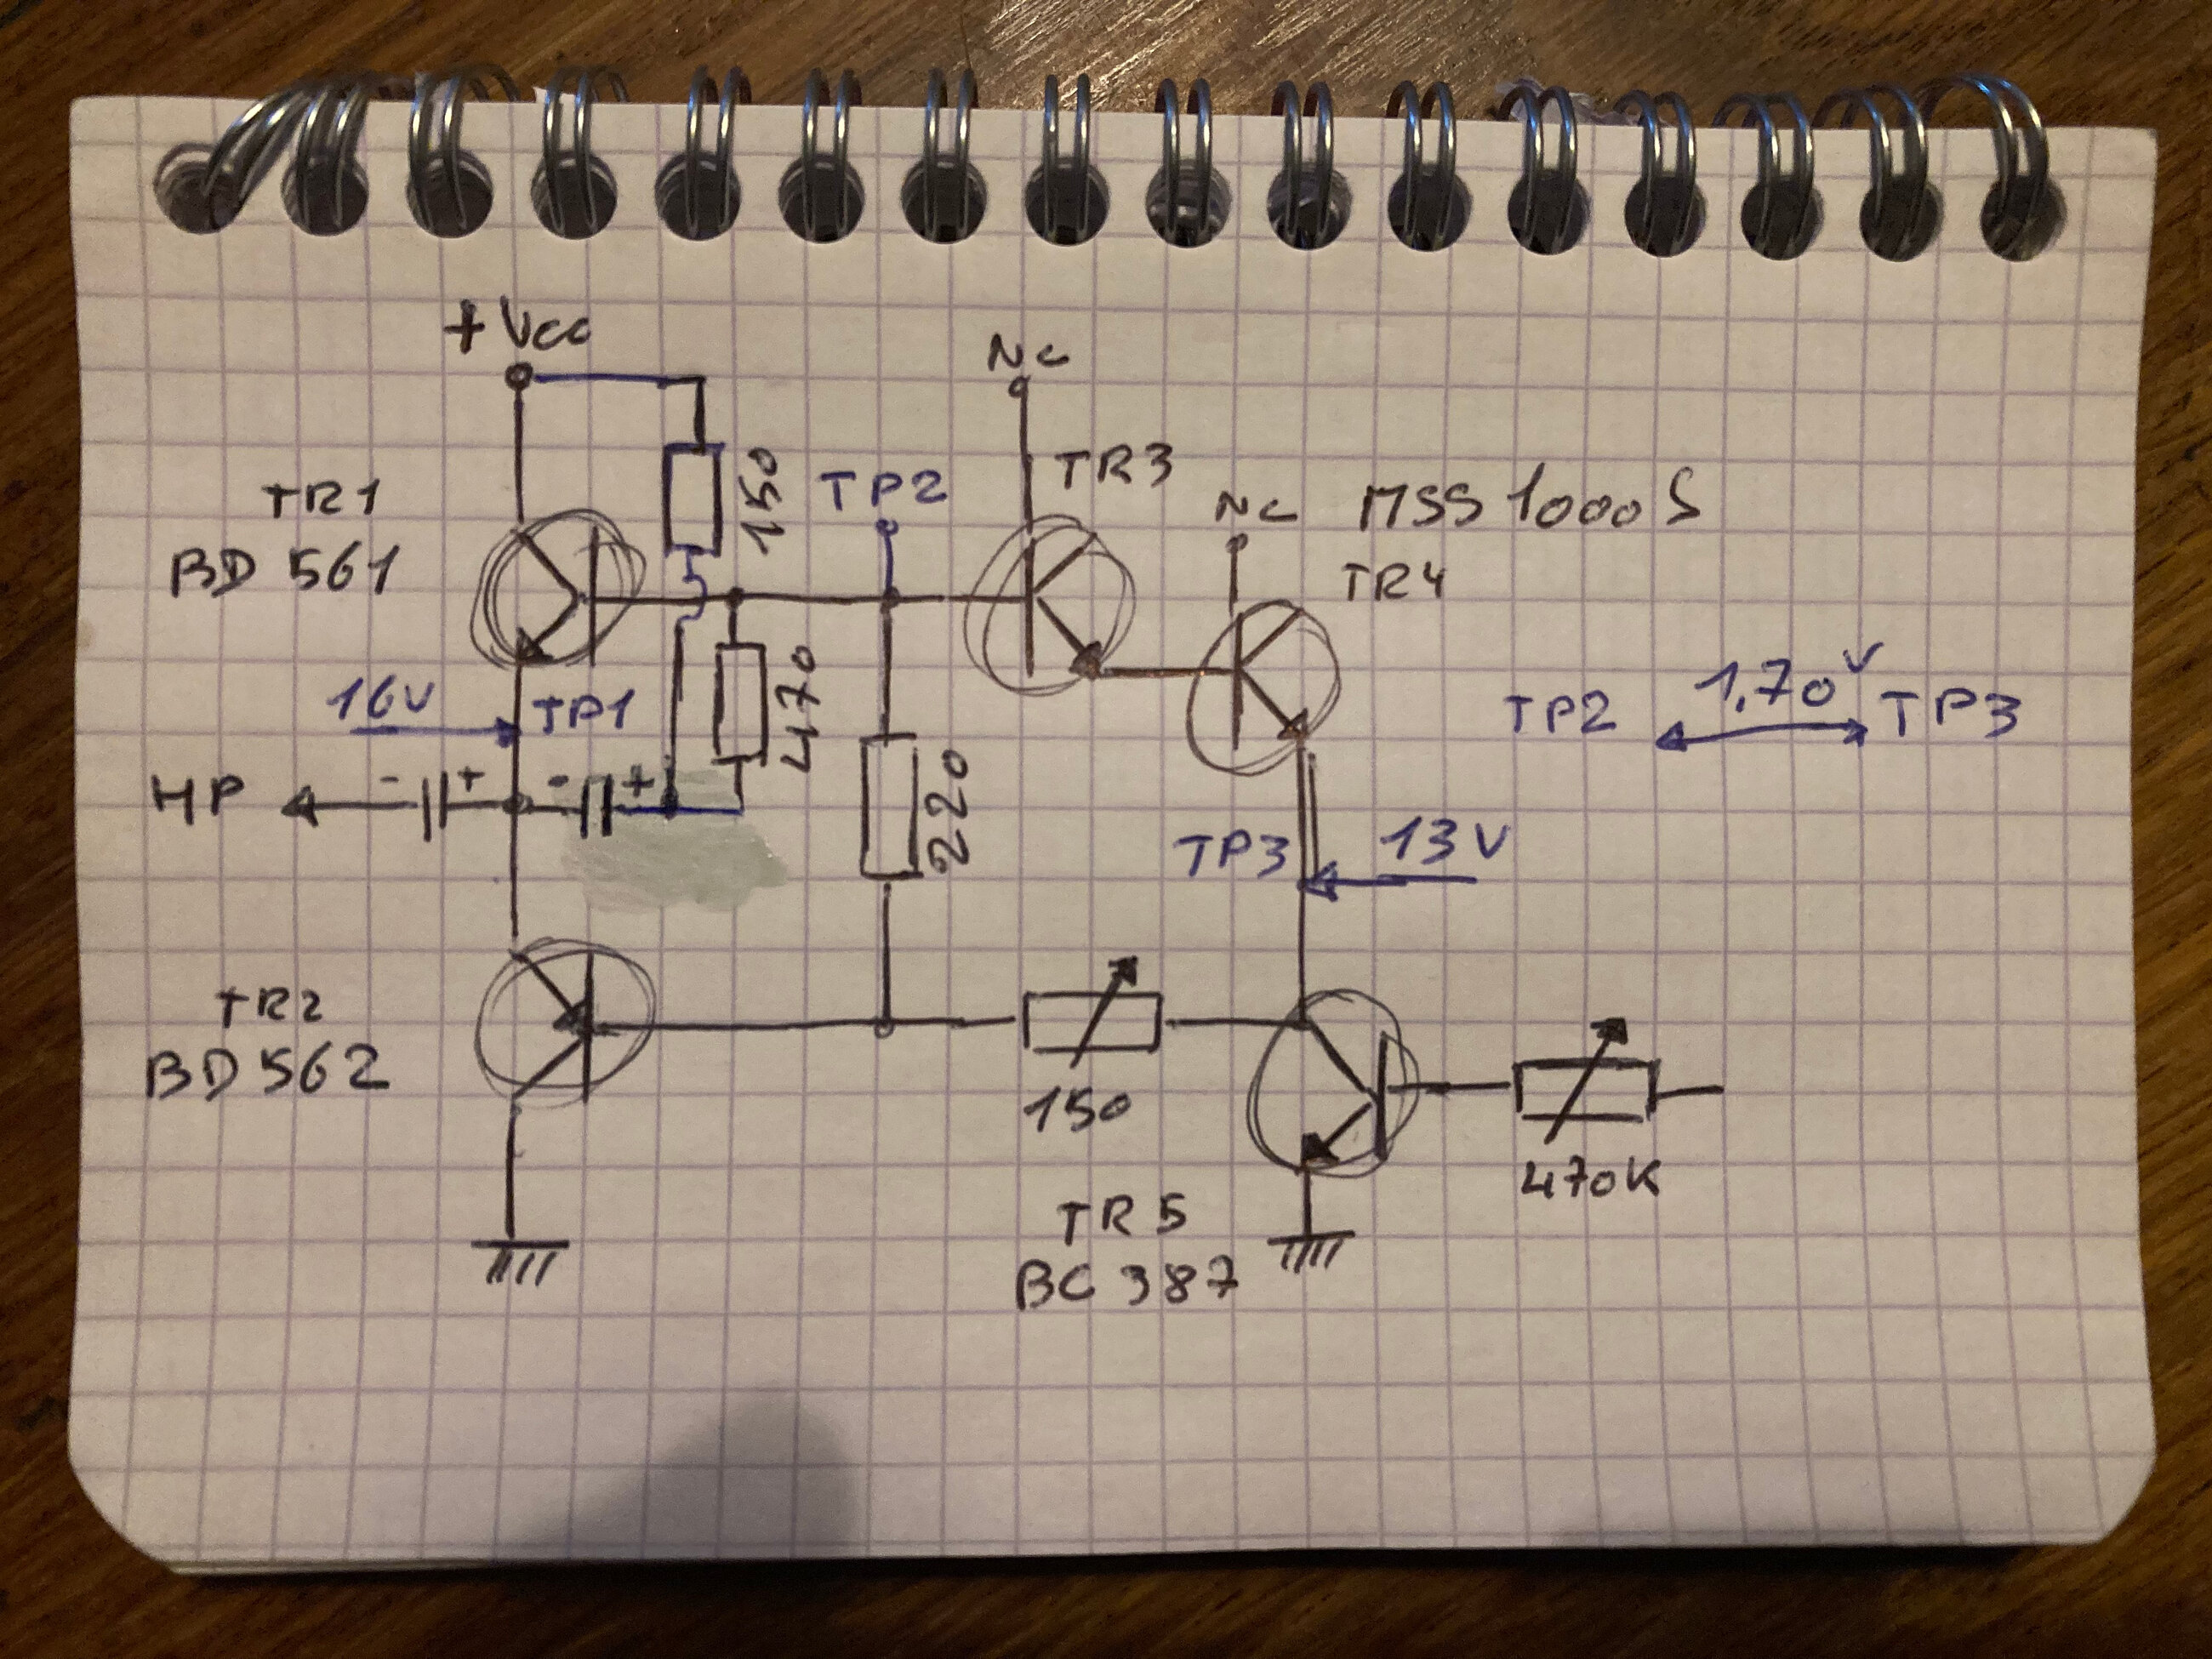 + Vcc
NC
TR1
BD 561
150
TP2
TR3
NC MSS 1000 S
TR4
16V TP1
470
TP2 1,70 V TP3
HP - + - +
220
TP3 13 V
TR2
BD 562
150
470K
TR 5
BC 387